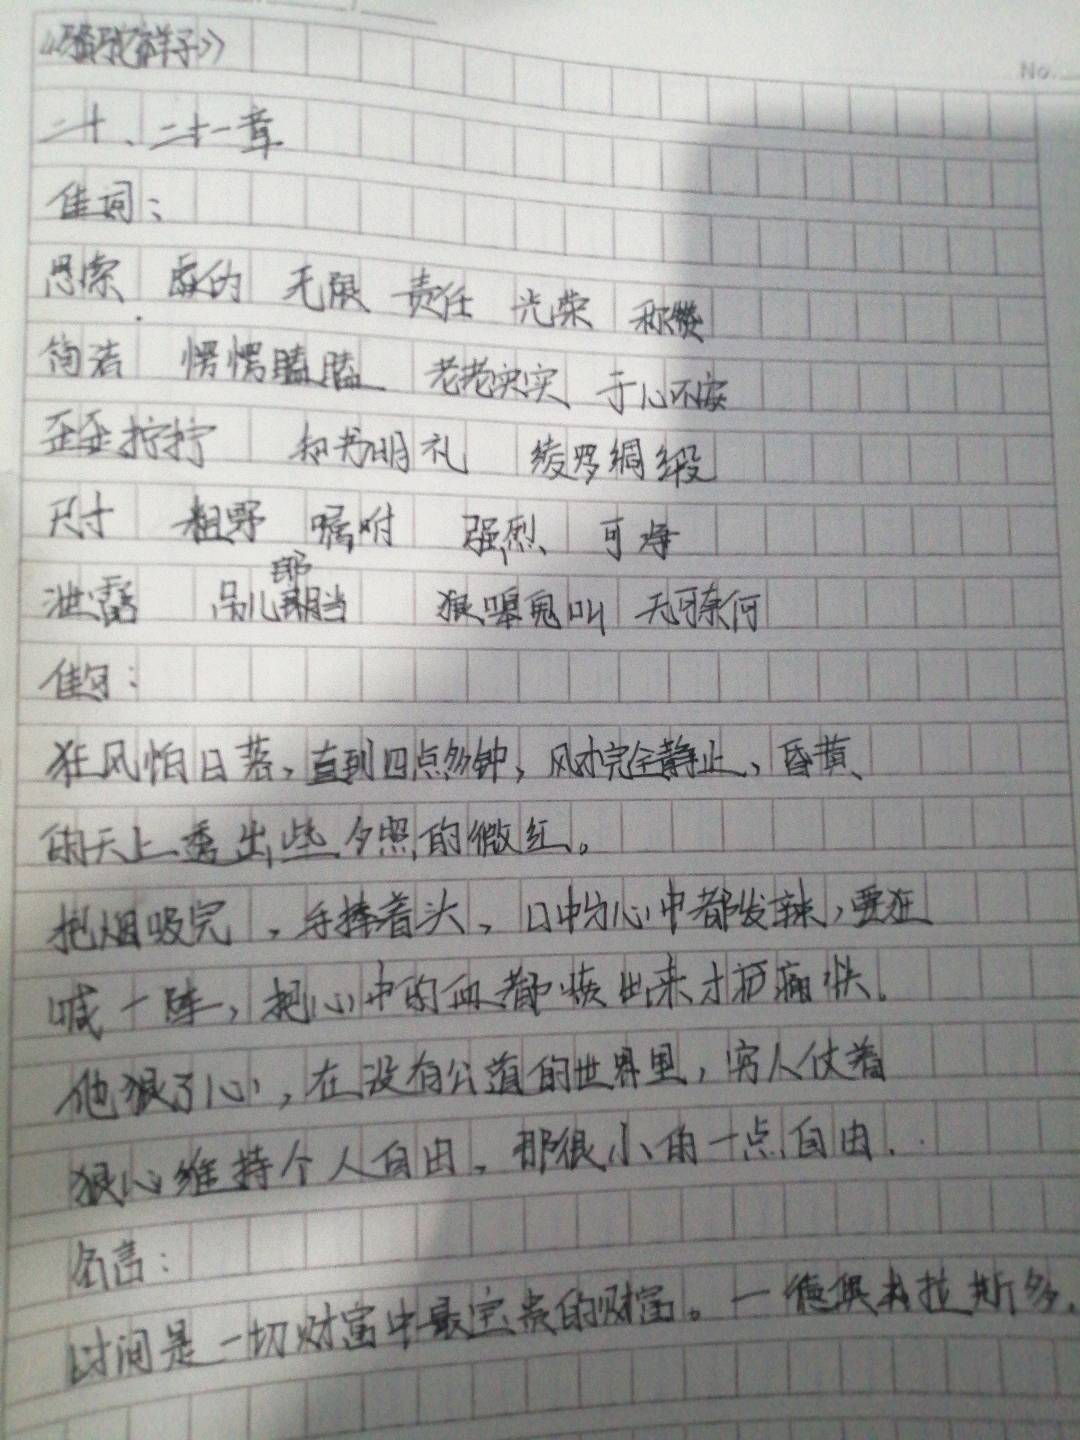 《骆驼祥子》
No.
二十、二十一章
佳词：
思索 虚伪 无限 责任 光荣 称赞
简洁 愣愣瞌瞌 老老实实 于心不安
歪歪拧拧 知书明礼 绫罗绸缎
尺寸 粗野 嘱咐 强烈 可
泄露 吊儿郎当 狼嚎鬼叫 无可奈何
佳句：
狂风怕日落，直到四点多钟，风才完全静止，昏黄
的天上透出些夕照的微红。
把烟吸完，手捧着头，口中与心中都发辣，要狂
喊一阵，把心中的血都喷出来才痛快。
他狠了心，在没有公道的世界里，穷人仗着
狠心维持个人自由，那很小的一点自由.
名言：
时间是一切财富中最宝贵的财富。—德奥弗拉斯多.